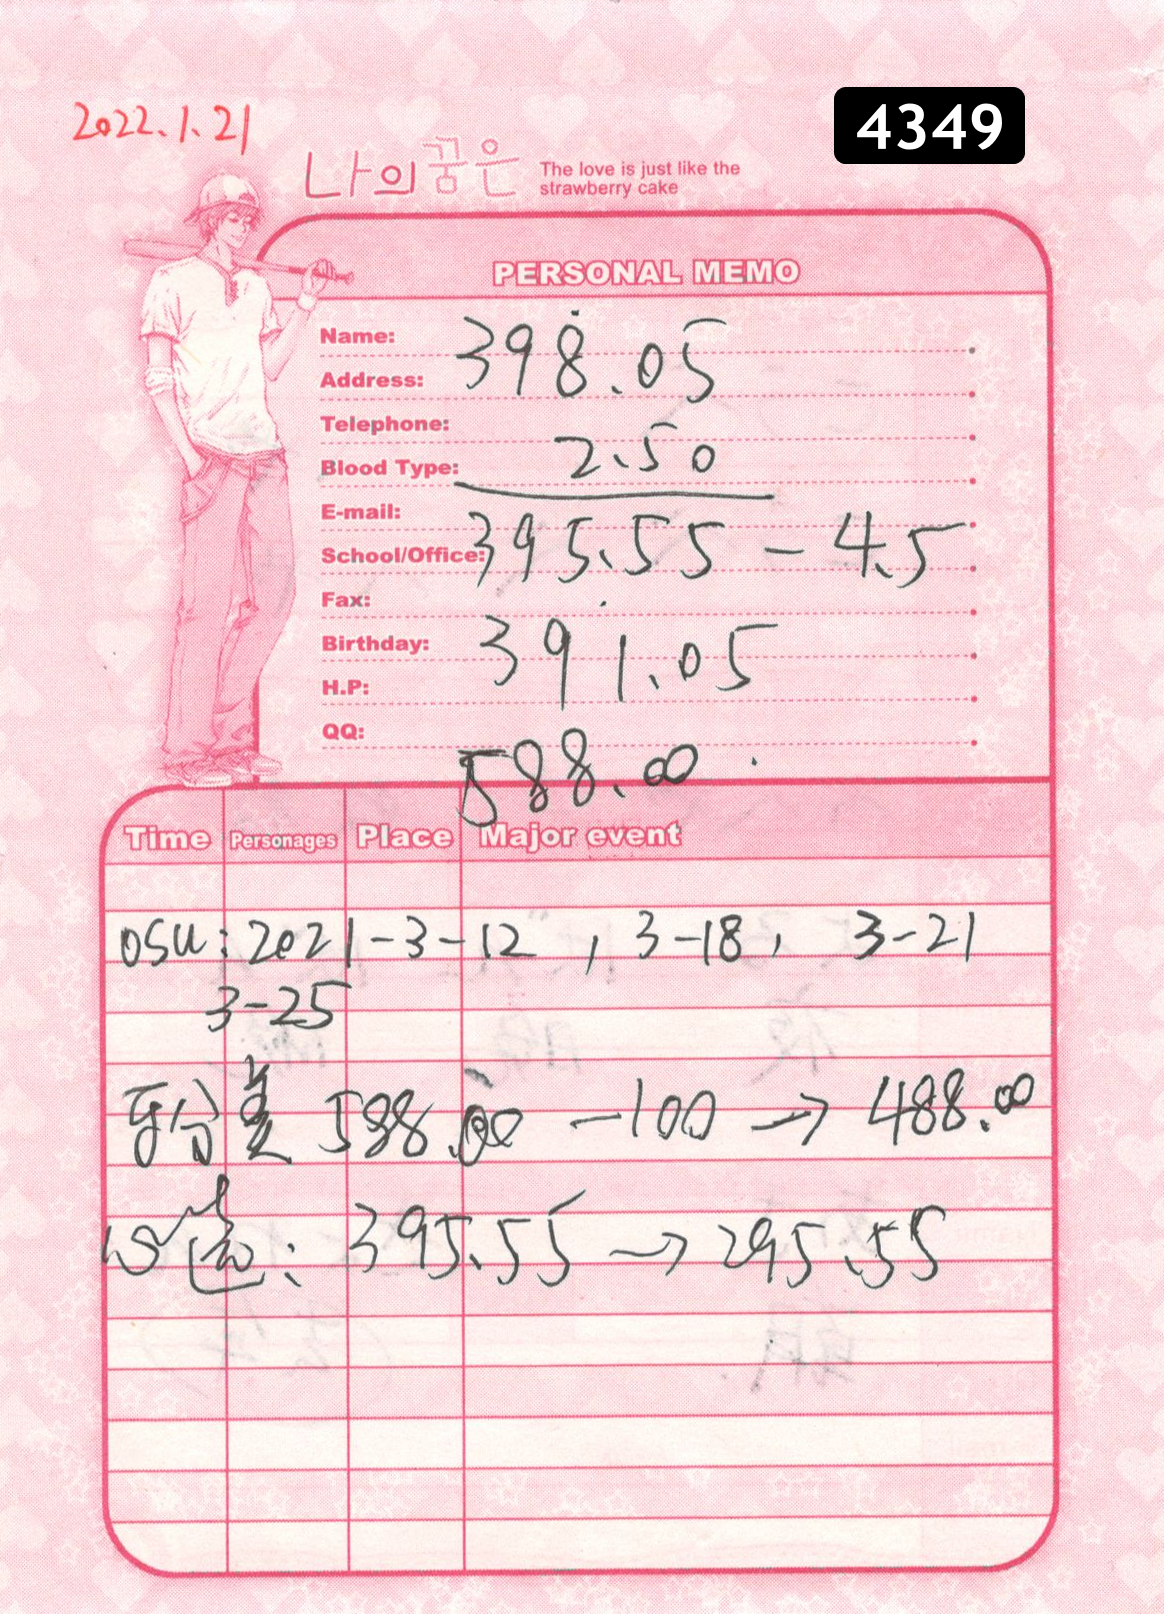 2022.1.21
4349
나의꿈은
The love is just like the
strawberry cake
PERSONAL MEMO
Name:
398.05
Address:
Telephone:
Blood Type: 2.50
E-mail:
School/Office: 395.55 - 4.5
Fax:
Birthday: 391.05
H.P:
QQ:
588.00
Time Personages Place Major event
OSU: 2021-3-12, 3-18, 3-21
3-25
588.00 -100 → 488.00
: 395.55 → 295.55